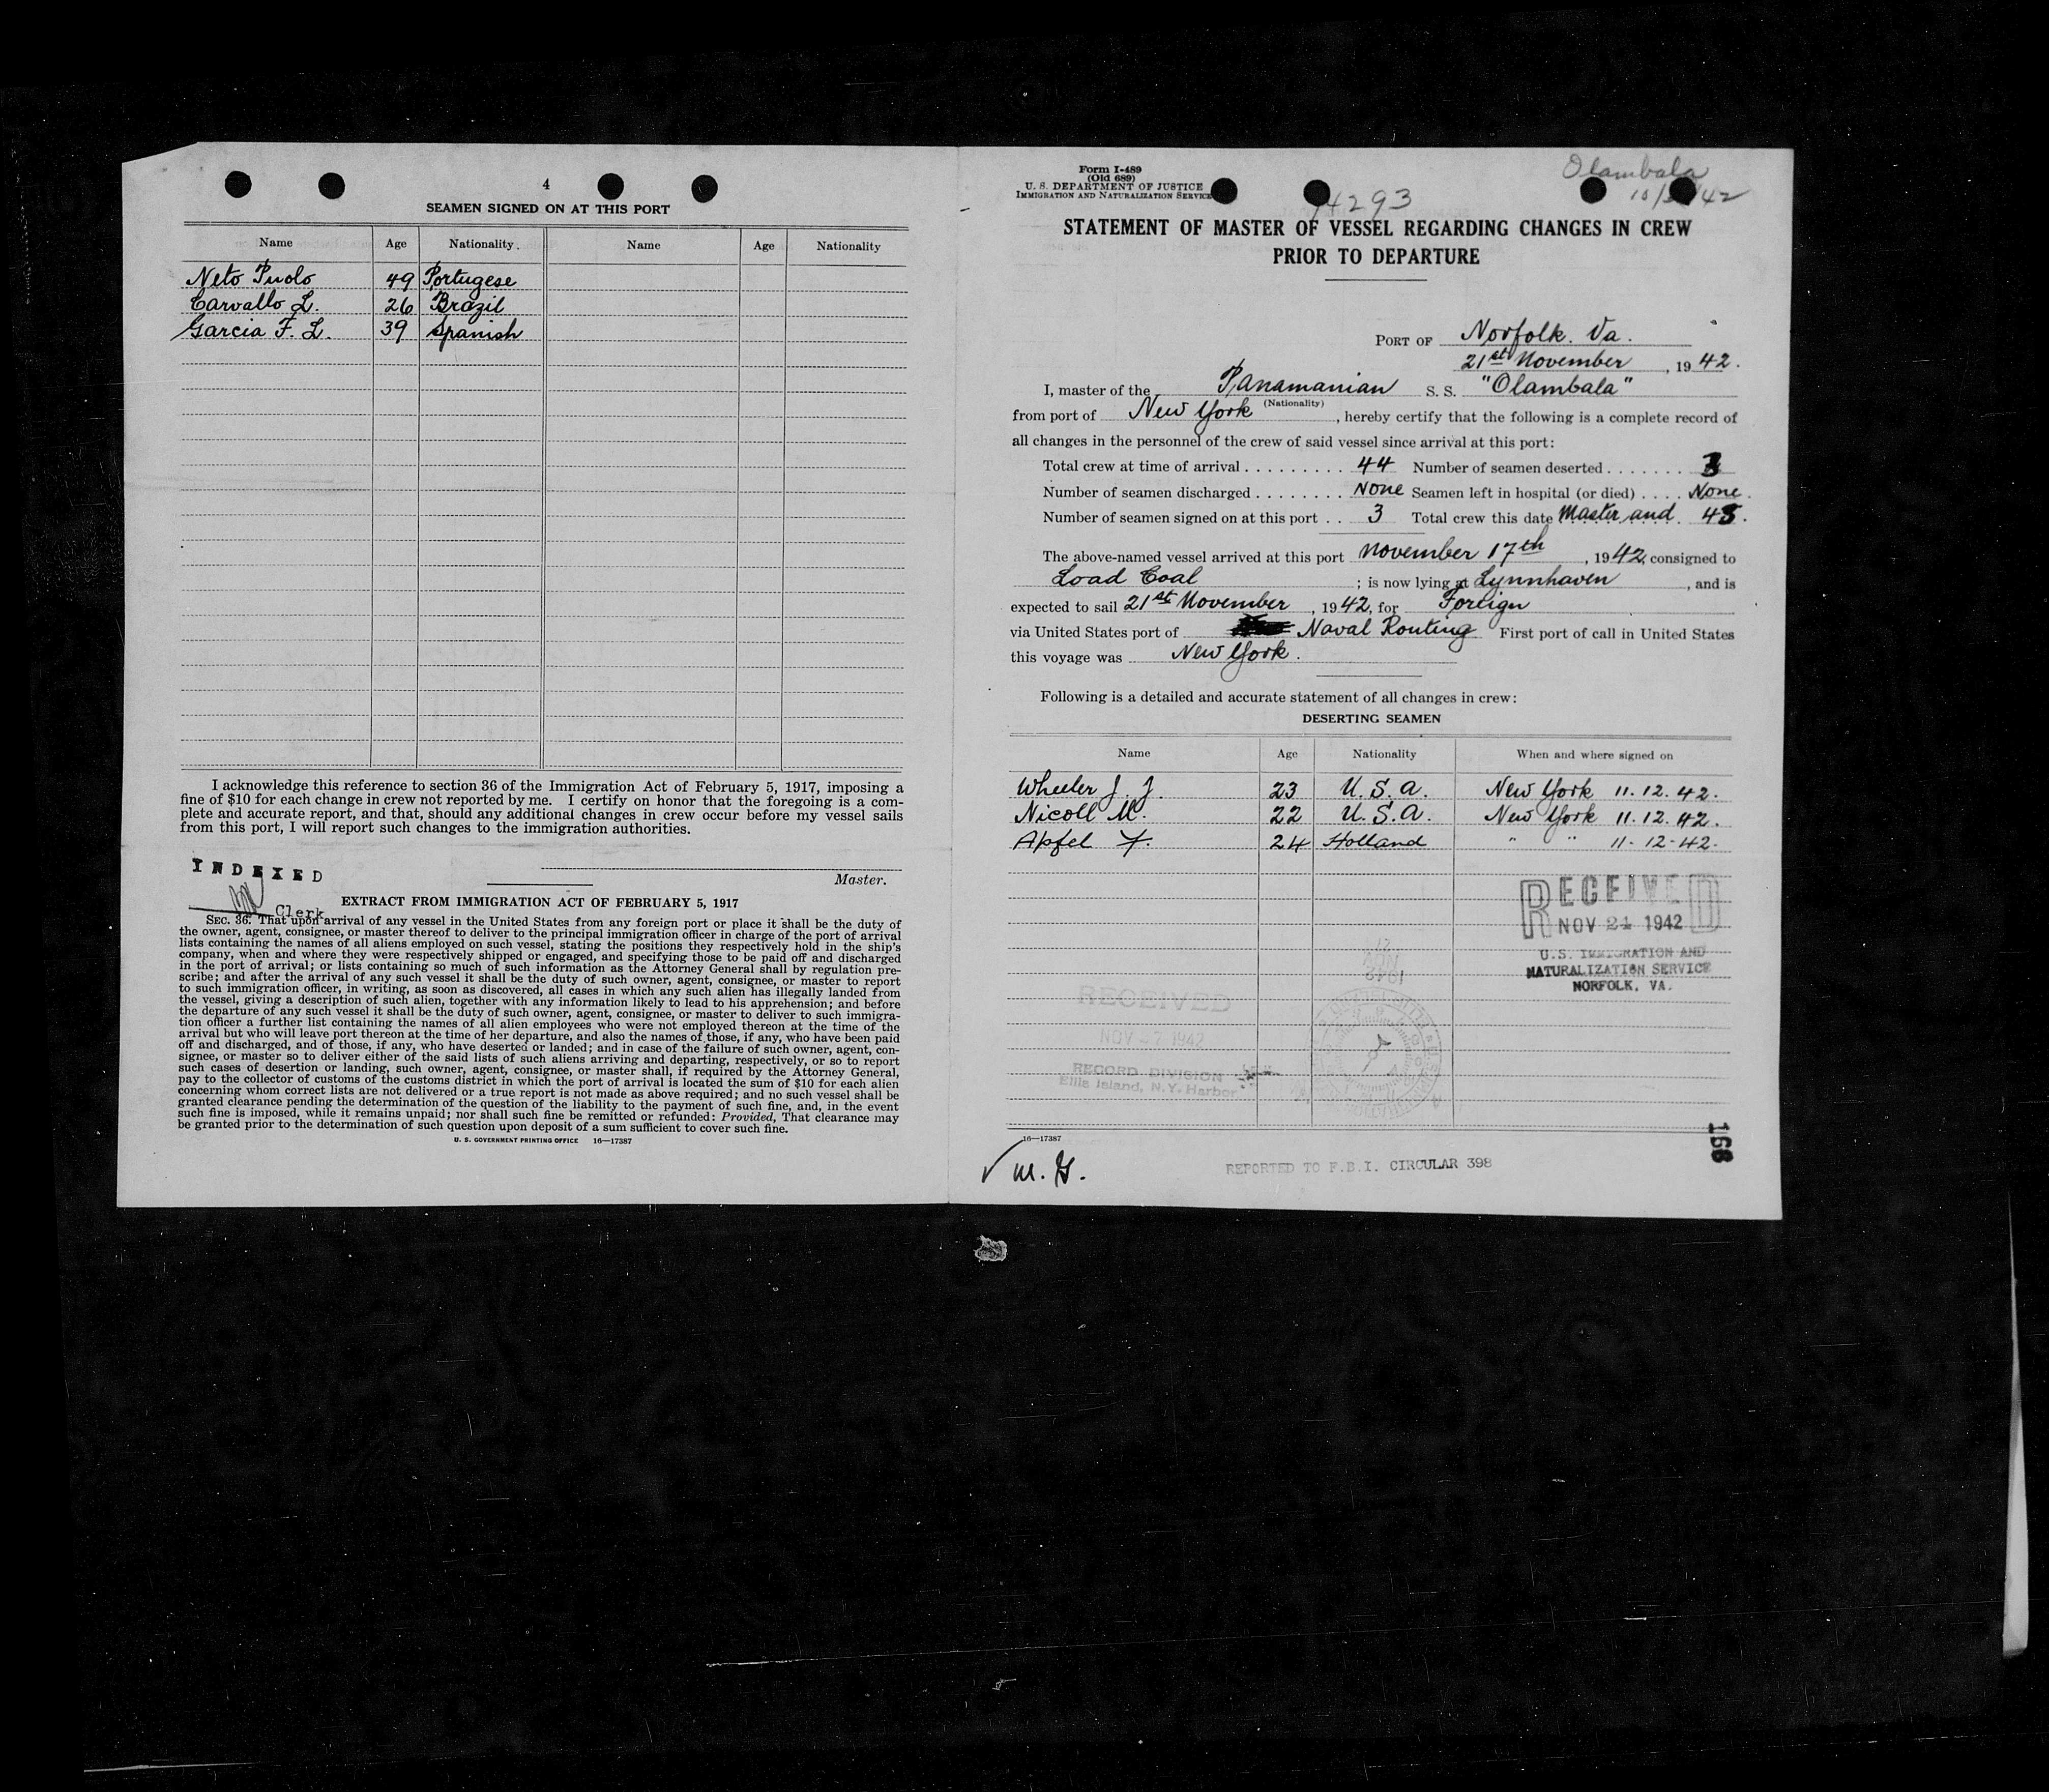 4
SEAMEN SIGNED ON AT THIS PORT
Name Age Nationality. Name Age Nationality
Neto 49 Portugese
Carvallo L. 26 Brazil
Garcia F. L. 39 Spanish
I acknowledge this reference to section 36 of the Immigration Act of February 5, 1917, imposing a
fine of $10 for each change in crew not reported by me. I certify on honor that the foregoing is a com-
plete and accurate report, and that, should any additional changes in crew occur before my vessel sails
from this port, I will report such changes to the immigration authorities.
INDEXED
Master.
Clerk
EXTRACT FROM IMMIGRATION ACT OF FEBRUARY 5, 1917
SEC. 36. That upon arrival of any vessel in the United States from any foreign port or place it shall be the duty of
the owner, agent, consignee, or master thereof to deliver to the principal immigration officer in charge of the port of arrival
lists containing the names of all aliens employed on such vessel, stating the positions they respectively hold in the ship's
company, when and where they were respectively shipped or engaged, and specifying those to be paid off and discharged
in the port of arrival; or lists containing so much of such information as the Attorney General shall by regulation pre-
scribe; and after the arrival of any such vessel it shall be the duty of such owner, agent, consignee, or master to report
to such immigration officer, in writing, as soon as discovered, all cases in which any such alien has illegally landed from
the vessel, giving a description of such alien, together with any information likely to lead to his apprehension; and before
the departure of any such vessel it shall be the duty of such owner, agent, consignee, or master to deliver to such immigra-
tion officer a further list containing the names of all alien employees who were not employed thereon at the time of the
arrival but who will leave port thereon at the time of her departure, and also the names of those, if any, who have been paid
off and discharged, and of those, if any, who have deserted or landed; and in case of the failure of such owner, agent, con-
signee, or master so to deliver either of the said lists of such aliens arriving and departing, respectively, or so to report
such cases of desertion or landing, such owner, agent, consignee, or master shall, if required by the Attorney General,
pay to the collector of customs of the customs district in which the port of arrival is located the sum of $10 for each alien
concerning whom correct lists are not delivered or a true report is not made as above required; and no such vessel shall be
granted clearance pending the determination of the question of the liability to the payment of such fine, and, in the event
such fine is imposed, while it remains unpaid; nor shall such fine be remitted or refunded: Provided, That clearance may
be granted prior to the determination of such question upon deposit of a sum sufficient to cover such fine.
U. S. GOVERNMENT PRINTING OFFICE 16—17387
Form I-489
(Old 689)
U. S. DEPARTMENT OF JUSTICE
IMMIGRATION AND NATURALIZATION SERVICE
Olambala
4293
STATEMENT OF MASTER OF VESSEL REGARDING CHANGES IN CREW
PRIOR TO DEPARTURE
PORT OF Norfolk. Va.
21st November, 1942.
I, master of the Panamanian S. S. "Olambala"
(Nationality)
from port of New York, hereby certify that the following is a complete record of
all changes in the personnel of the crew of said vessel since arrival at this port:
Total crew at time of arrival . . . . . . . . . 44 Number of seamen deserted . . . . . . . 3
Number of seamen discharged . . . . . . . . None Seamen left in hospital (or died) . . . . None.
Number of seamen signed on at this port . . 3 Total crew this date Master and 43.
The above-named vessel arrived at this port November 17th, 1942, consigned to
Load Coal; is now lying at Lynnhaven, and is
expected to sail 21st November, 1942, for Foreign
via United States port of Naval Routing First port of call in United States
this voyage was New York.
Following is a detailed and accurate statement of all changes in crew:
DESERTING SEAMEN
Name Age Nationality When and where signed on
Wheeler J. J. 23 U.S.A. New York 11.12.42.
Nicoll M. 22 U.S.A. New York 11.12.42.
Apfel 24 Holland " " 11-12-42.
RECEIVED
NOV 21 1942
U.S. IMMIGRATION AND
NATURALIZATION SERVICE
NORFOLK, VA.
21
NOV
1942
RECEIVED
NOV 27 1942
RECORD DIVISION
Ellis Island, N.Y. Harbor
16—17387
M. G.
REPORTED TO F.B.I. CIRCULAR 398
168